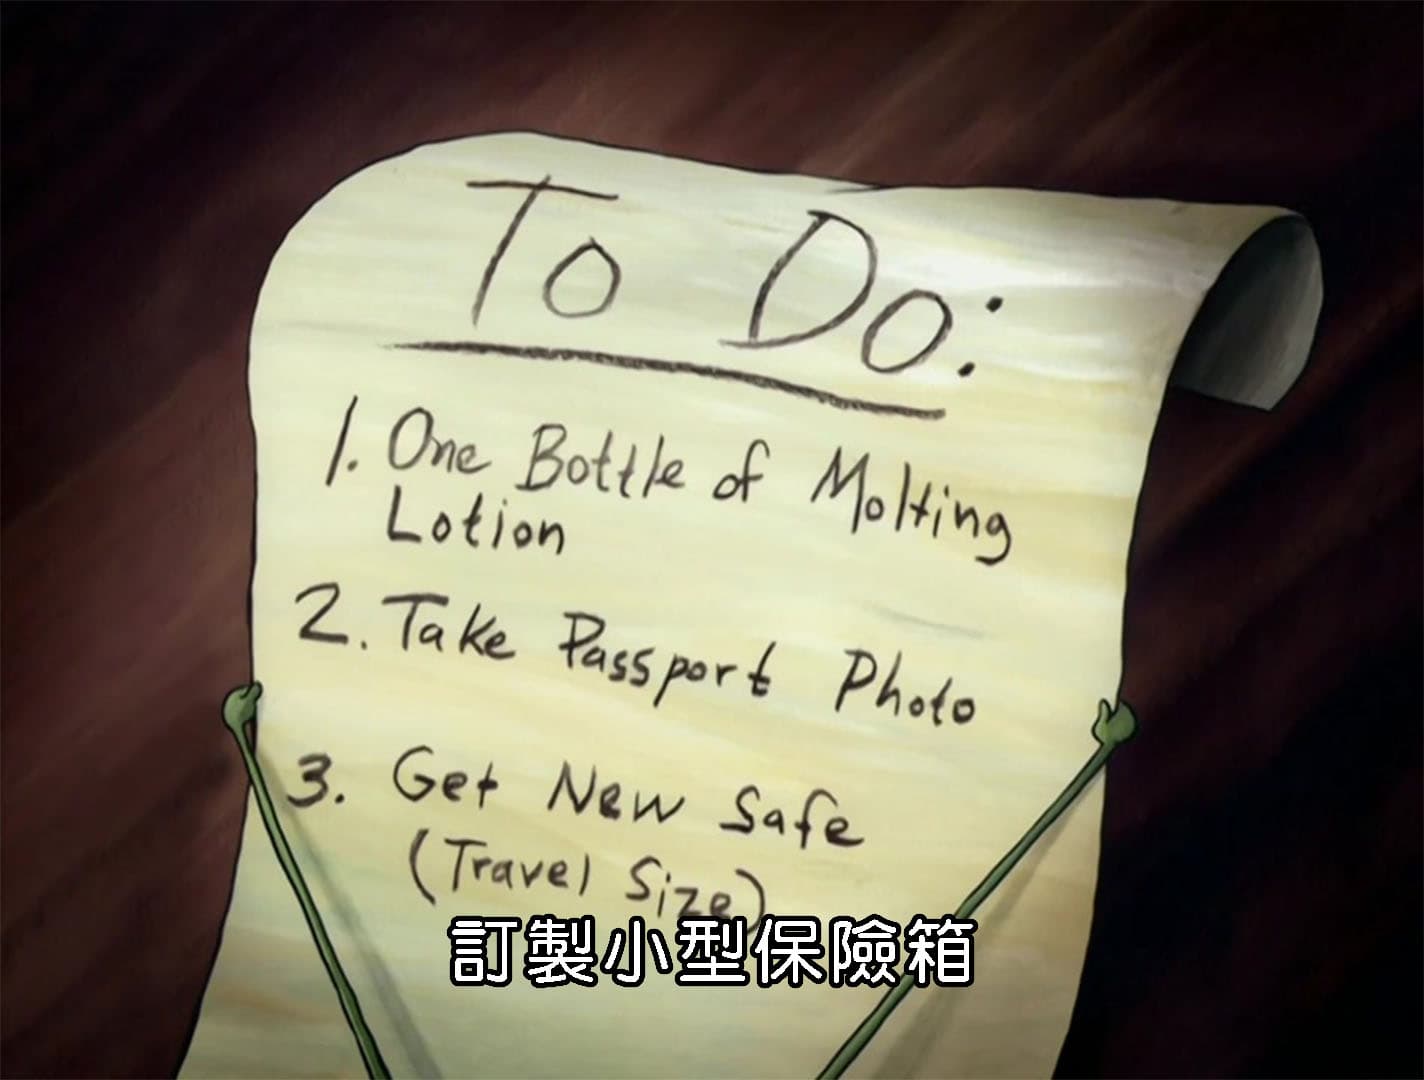 To Do:
1. One Bottle of Molting
Lotion
2. Take Passport Photo
3. Get New Safe
(Travel Size)
訂製小型保險箱